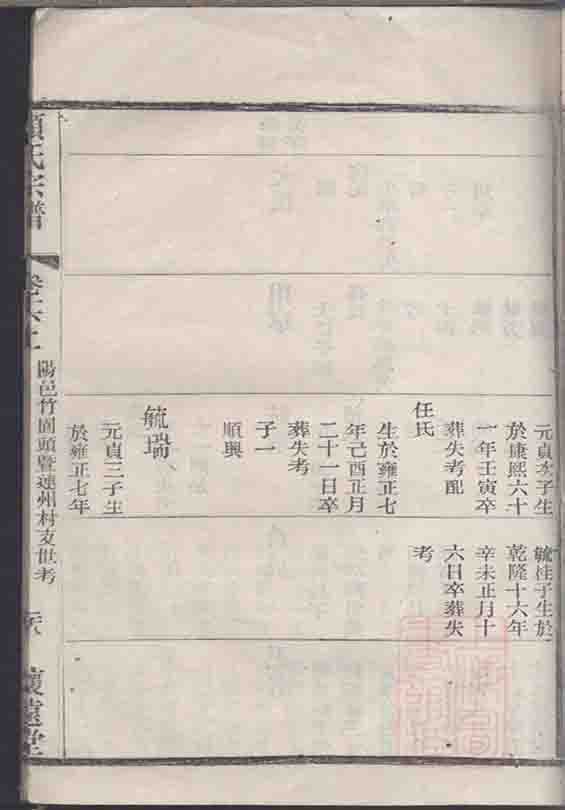 元貞次子生
於康熙六十
一年壬寅卒
葬失考配
任氏
生於雍正七
年己酉正月
二十一日卒
葬失考
子一
順興
毓瑞
元貞三子生
於雍正七年
毓桂子生於
乾隆十六年
辛未正月十
六日卒葬失
考
氏宗譜
陽邑竹園頭暨蓮州村支世考
懷遠堂